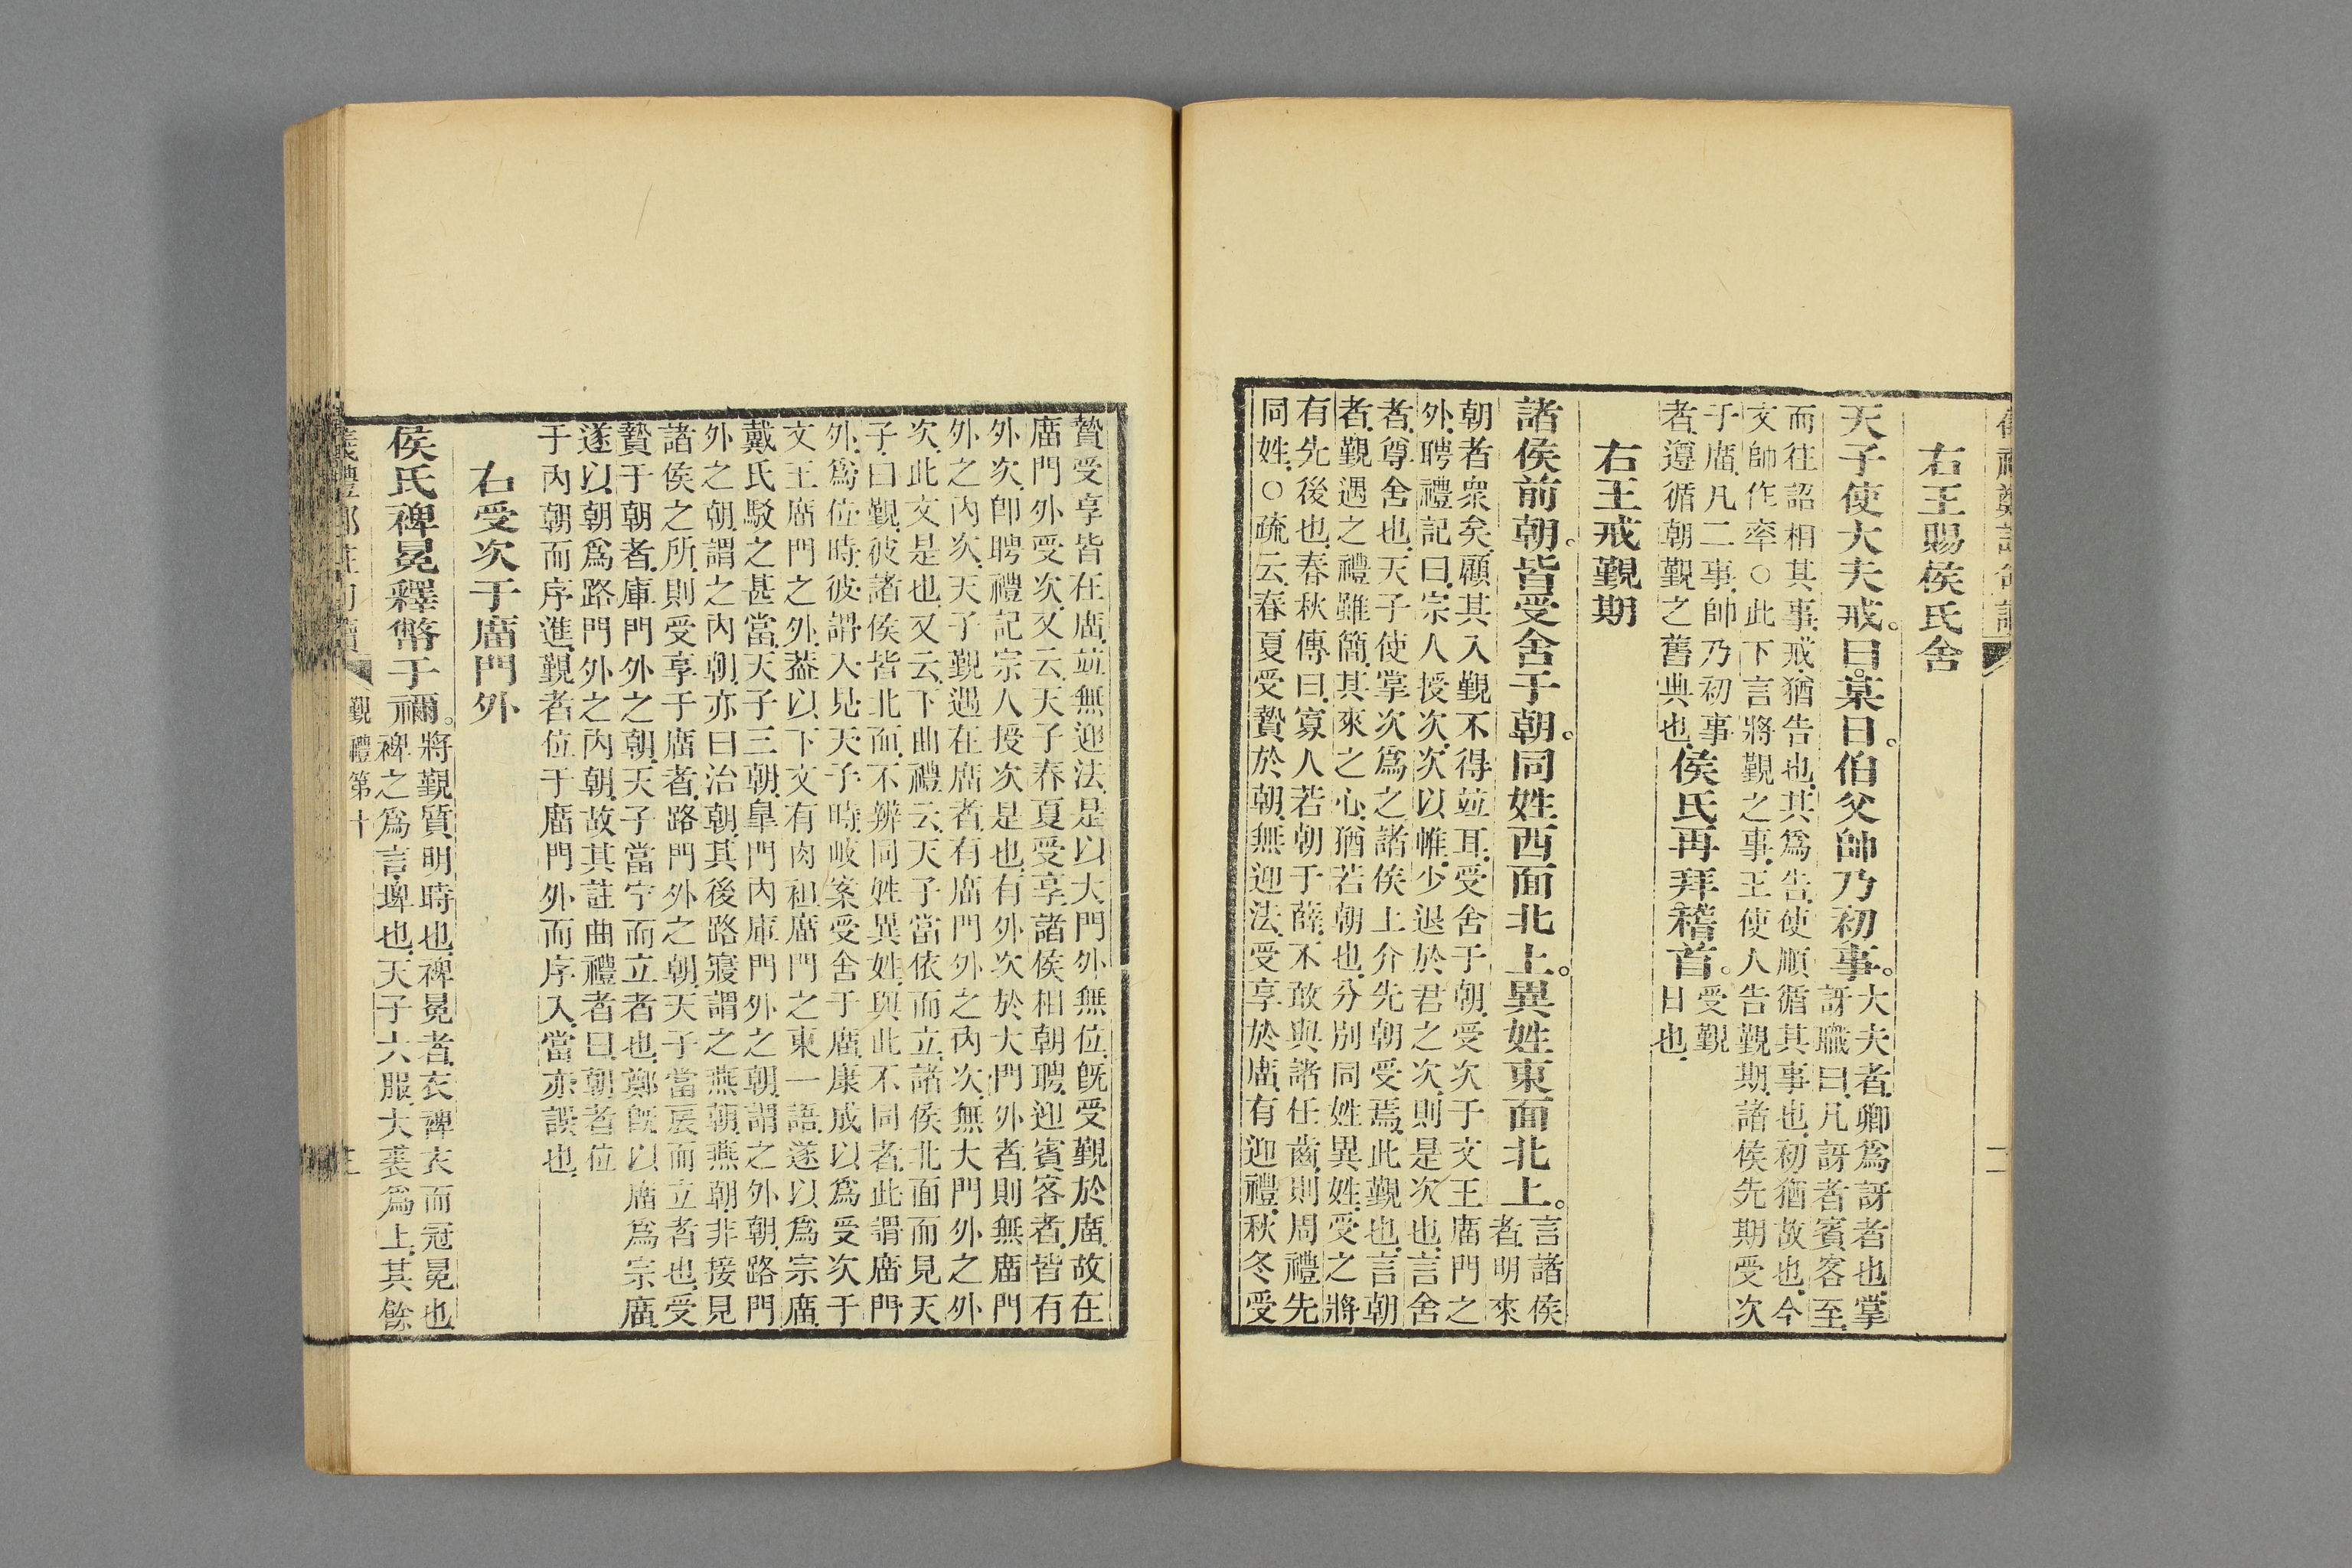 右王賜侯氏舍
天子使大夫戒曰某日伯父帥乃初事大夫者卿爲訝者也掌
訝職曰凡訝者賓客至
而往詔相其事戒猶告也其爲告使順循其事也初猶故也今
文帥作率○此下言將覲之事王使人告覲期諸侯先期受次
于廟凡二事帥乃初事
者遵循朝覲之舊典也侯氏再拜稽首受覲
日也
右王戒覲期
諸侯前朝皆受舍于朝同姓西面北上異姓東面北上言諸侯
者明來
朝者衆矣顧其入覲不得竝耳受舍于朝受次于文王廟門之
外聘禮記曰宗人授次次以帷少退於君之次則是次也言舍
者尊舍也天子使掌次爲之諸侯上介先朝受焉此覲也言朝
者覲遇之禮雖簡其來之心猶若朝也分別同姓異姓受之將
有先後也春秋傳曰寡人若朝于薛不敢與諸任齒則周禮先
同姓○疏云春夏受贄於朝無迎法受享於廟有迎禮秋冬受
贄受享皆在廟竝無迎法是以大門外無位旣受覲於廟故在
廟門外受次又云天子春夏受享諸侯相朝聘迎賓客者皆有
外次卽聘禮記宗人授次是也有外次於大門外者則無廟門
外之內次天子覲遇在廟者有廟門外之內次無大門外之外
次此文是也又云下曲禮云天子當依而立諸侯北面而見天
子曰覲彼諸侯皆北面不辨同姓異姓與此不同者此謂廟門
外爲位時彼謂入見天子時岐案受舍于廟康成以爲受次于
文王廟門之外葢以下文有肉袒廟門之東一語遂以爲宗廟
戴氏駁之甚當天子三朝臯門內庫門外之朝謂之外朝路門
外之朝謂之內朝亦曰治朝其後路寢謂之燕朝燕朝非接見
諸侯之所則受享于廟者路門外之朝天子當扆而立者也受
贄于朝者庫門外之朝天子當宁而立者也鄭旣以廟爲宗廟
遂以朝爲路門外之內朝故其註曲禮者曰朝者位
于內朝而序進覲者位于廟門外而序入當亦誤也
右受次于廟門外
侯氏裨冕釋幣于禰將覲質明時也裨冕者衣裨衣而冠冕也
裨之爲言埤也天子六服大裘爲上其餘
覲禮第十